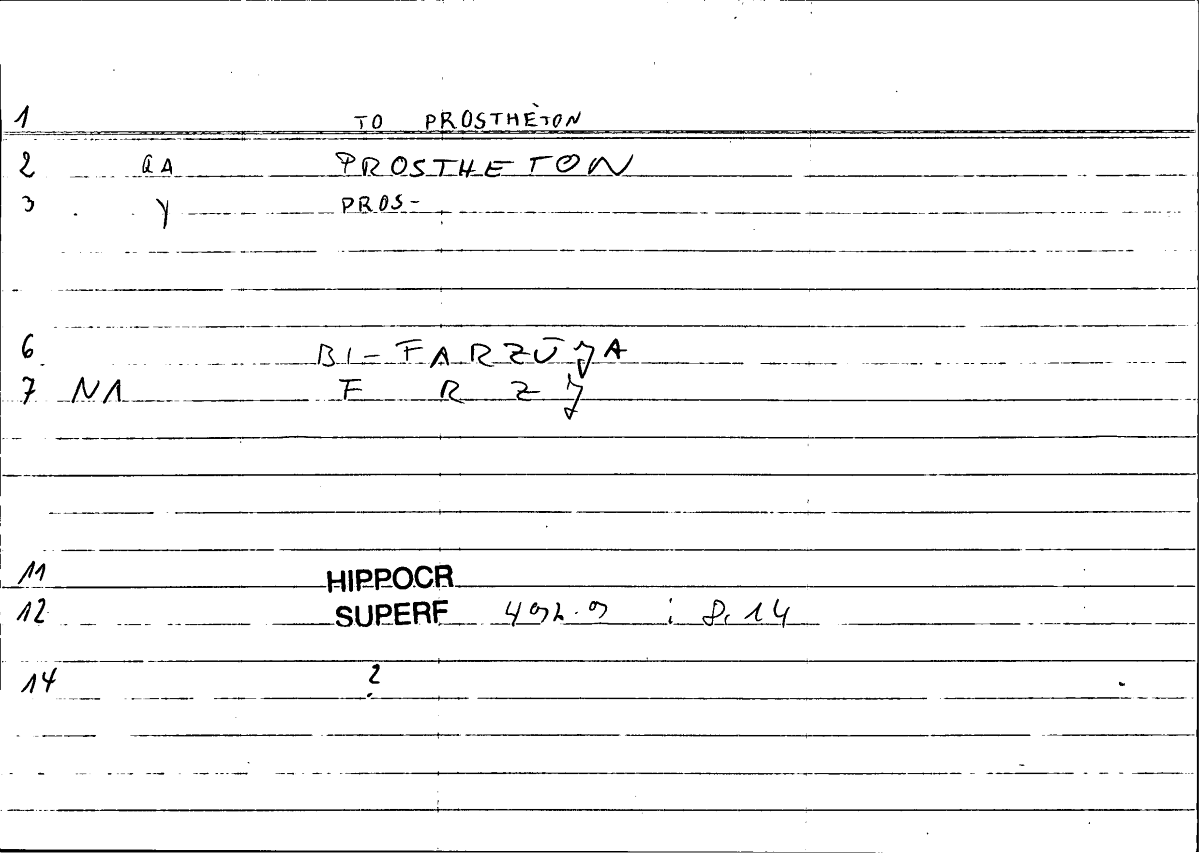 1 TO PROSTHÈTON
2 QA PROSTHETON
3 Y PROS-
6 BI-FARZŪJA
7 NA F R Z J
11 HIPPOCR
12 SUPERF 492.9 ; 8, 14
14 ?